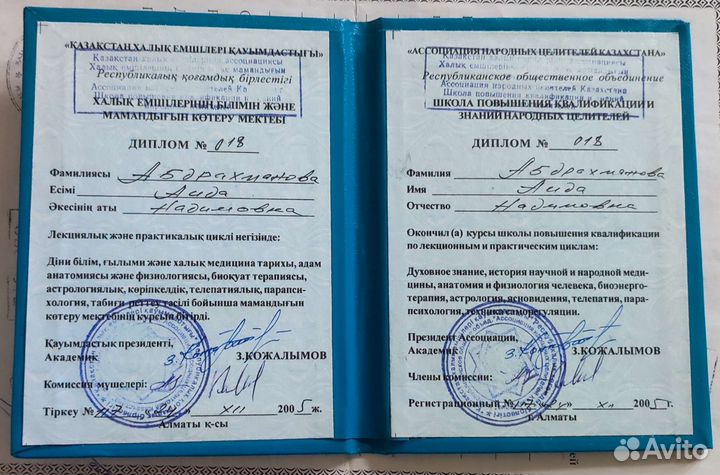 «ҚАЗАҚСТАН ХАЛЫҚ ЕМШІЛЕРІ ҚАУЫМДАСТЫҒЫ»
Республикалық қоғамдық бірлестігі
ХАЛЫҚ ЕМШІЛЕРІНІҢ БІЛІМІН ЖӘНЕ
МАМАНДЫҒЫН КӨТЕРУ МЕКТЕБІ
ДИПЛОМ № 018
Фамилиясы Абдрахманова
Есімі Аида
Әкесінің аты Надимовна
Лекциялық және практикалық циклі негізінде:
Діни білім, ғылыми және халық медицина тарихы, адам
анатомиясы және физиологиясы, биоқуат терапиясы,
астрологиялық, көріпкелдік, телепатиялық, парапси-
хология, табиғи реттеу тәсілі бойынша мамандығын
көтеру мектебінің курсын бітірді.
Қауымдастық президенті,
Академик З.КОЖАЛЫМОВ
Комиссия мүшелері:
Тіркеу № 117 XII 2005 ж.
Алматы қ-сы
«АССОЦИАЦИЯ НАРОДНЫХ ЦЕЛИТЕЛЕЙ КАЗАХСТАНА»
Республиканское общественное объединение
Ассоциация народных целителей Казахстана
Школа повышения квалификации
ШКОЛА ПОВЫШЕНИЯ КВАЛИФИКАЦИИ И
ЗНАНИЙ НАРОДНЫХ ЦЕЛИТЕЛЕЙ
ДИПЛОМ № 018
Фамилия Абдрахманова
Имя Аида
Отчество Надимовна
Окончил (а) курсы школы повышения квалификации
по лекционным и практическим циклам:
Духовное знание, история научной и народной меди-
цины, анатомия и физиология человека, биоэнерго-
терапия, астрология, ясновидения, телепатия, пара-
психология, техника саморегуляции.
Президент Ассоциации,
Академик З.КОЖАЛЫМОВ
Члены комиссии:
Регистрационный № 117 XII 2005 г.
г. Алматы
Avito